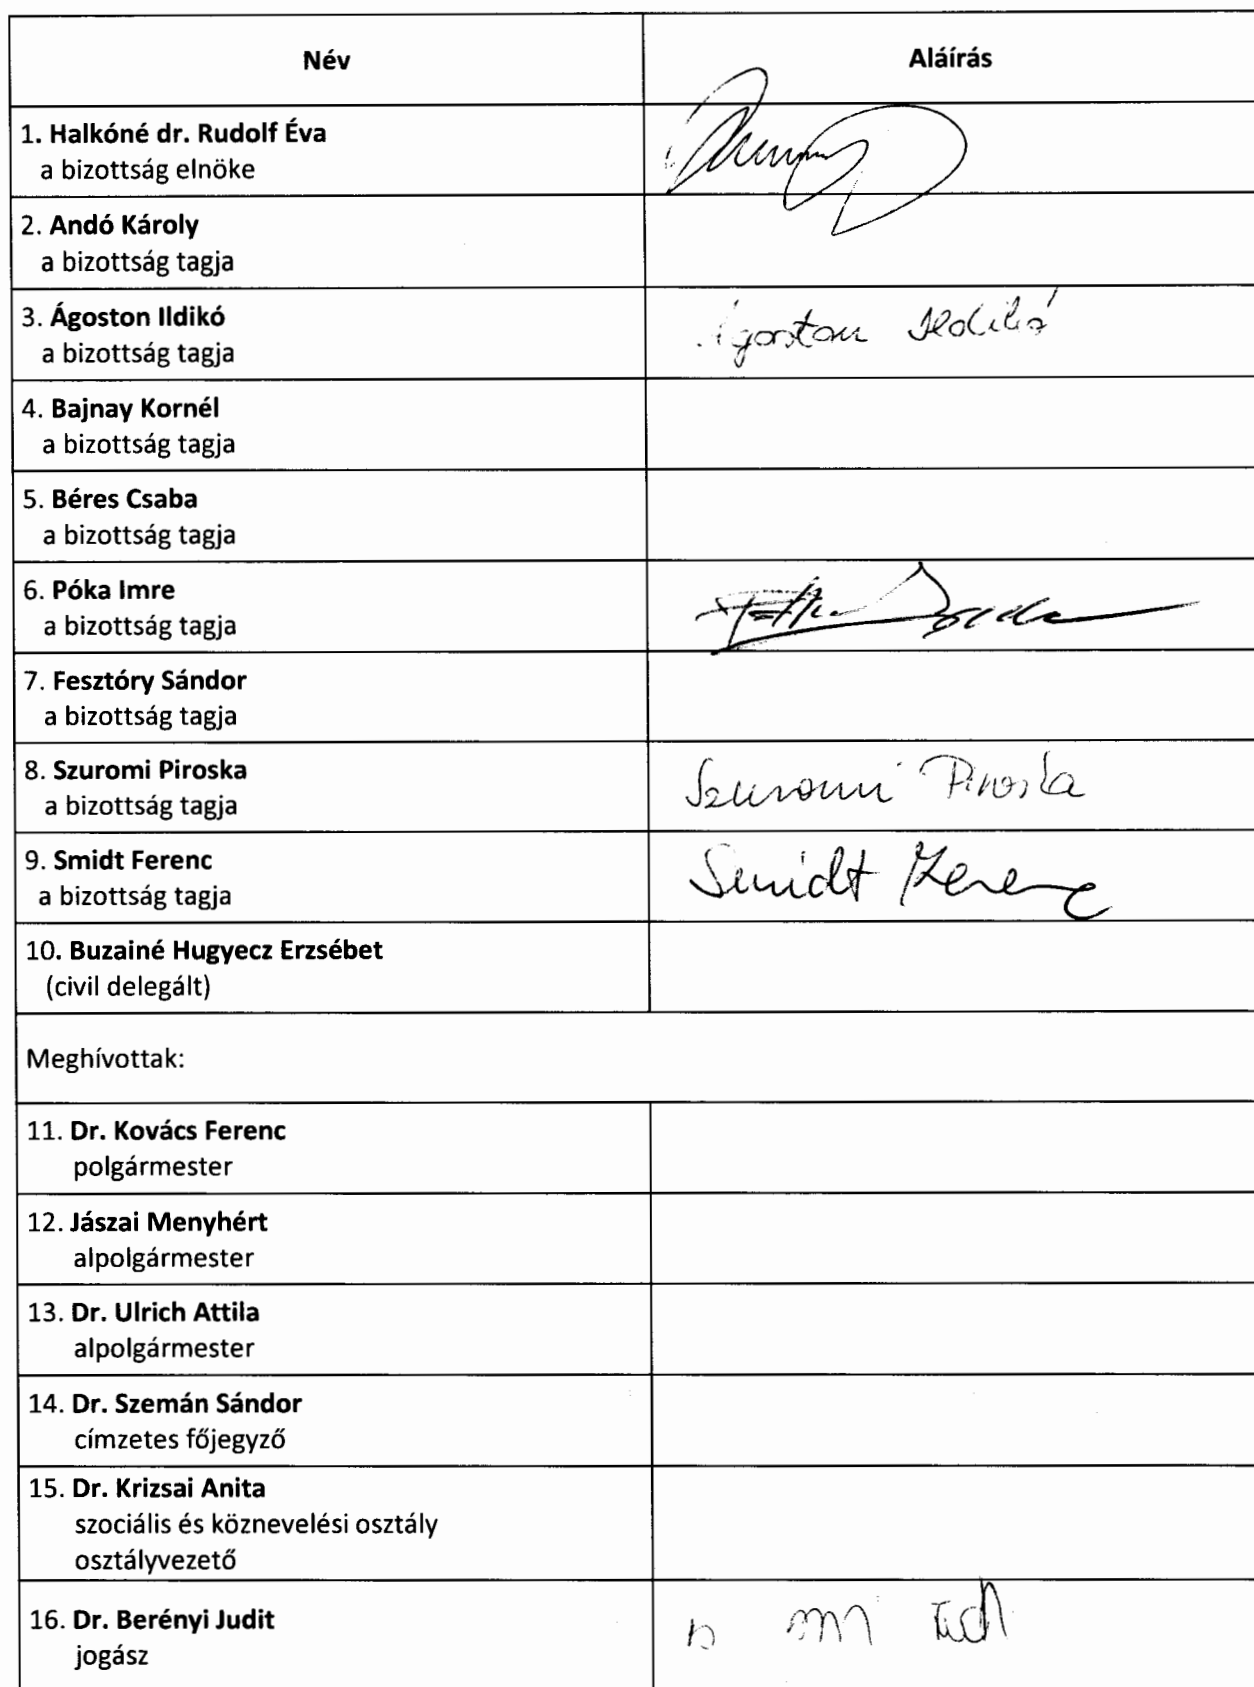 Név Aláírás
1. Halkóné dr. Rudolf Éva
a bizottság elnöke
2. Andó Károly
a bizottság tagja
3. Ágoston Ildikó Ágoston Ildikó
a bizottság tagja
4. Bajnay Kornél
a bizottság tagja
5. Béres Csaba
a bizottság tagja
6. Póka Imre
a bizottság tagja
7. Fesztóry Sándor
a bizottság tagja
8. Szuromi Piroska Szuromi Piroska
a bizottság tagja
9. Smidt Ferenc Smidt Ferenc
a bizottság tagja
10. Buzainé Hugyecz Erzsébet
(civil delegált)
Meghívottak:
11. Dr. Kovács Ferenc
polgármester
12. Jászai Menyhért
alpolgármester
13. Dr. Ulrich Attila
alpolgármester
14. Dr. Szemán Sándor
címzetes főjegyző
15. Dr. Krizsai Anita
szociális és köznevelési osztály
osztályvezető
16. Dr. Berényi Judit
jogász